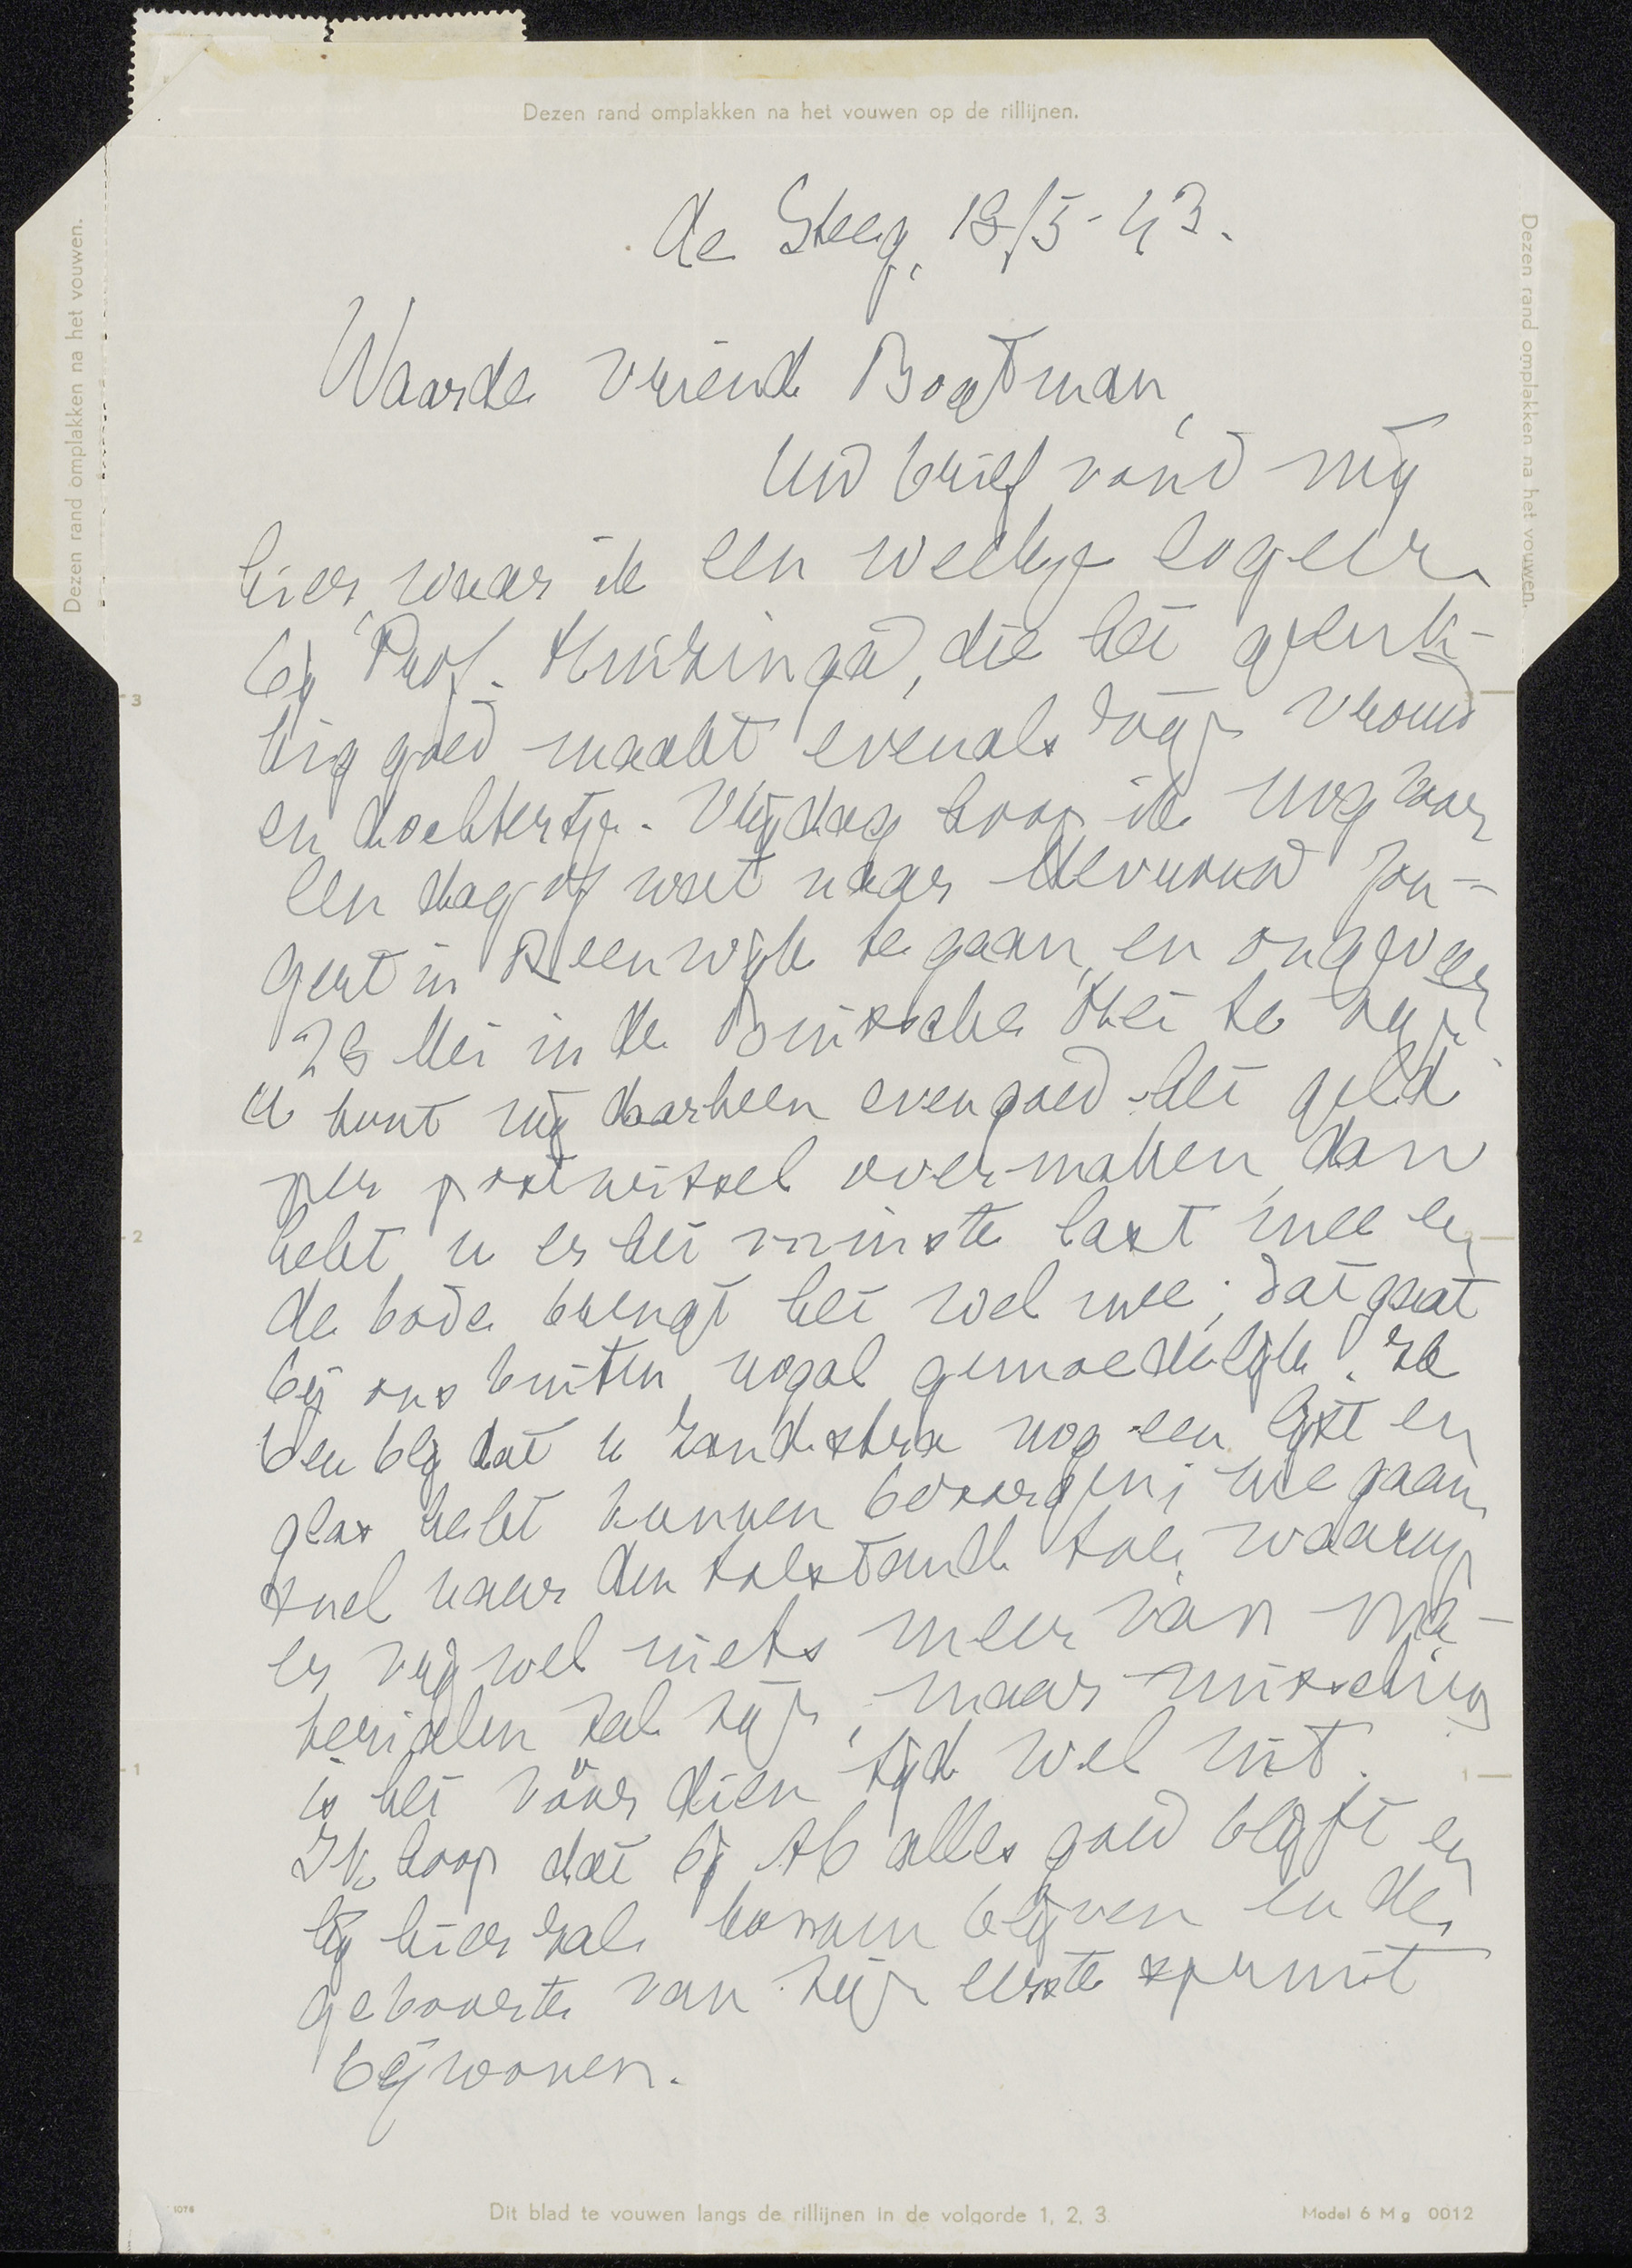 Dezen rand omplakken na het vouwen op de rillijnen.
Dezen rand omplakken na het vouwen.
Dezen rand omplakken na het vouwen.
de Steeg, 18/5-43.
Waarde vriend Boatman,
Uw brief vond mij
hier, waar ik een weekje logeer
bij Prof. Huizinga, die het geluk-
kig goed maakt evenals zijn vrouw
en dochtertje. Vrijdag hoop ik nog voor
een dag of wat naar Mevrouw Jon-
gert in Reeuwijk te gaan, en ongeveer
26 Mei in de Buissche Hei te zijn.
U kunt mij daarheen evengoed het geld
per postwissel overmaken, dan
hebt u er het minste last mee en
de bode brengt het wel mee; dat gaat
bij ons buiten nogal gemoedelijk. Ik
ben blij dat u Zandstra nog een lijst en
glas hebt kunnen bezorgen; we gaan
snel naar den toestand toe, waarop
er vrijwel niets meer van ma-
terialen zal zijn, maar misschien
is het vóór dien tijd wel uit.
Ik hoop dat bij Ab alles goed blijft en
hij hier zal kunnen blijven en de
geboorte van zijn eerste spruit
bijwonen.
3
2
1
1
1078
Dit blad te vouwen langs de rillijnen in de volgorde 1, 2, 3.
Model 6 M g 0012